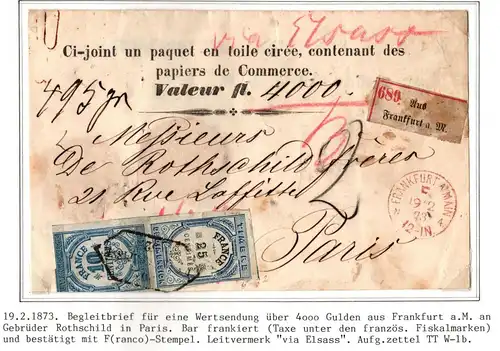 via Elsass
Ci-joint un paquet en toile cirée, contenant des
papiers de Commerce.
Valeur fl. 4000.
495 gr
689 Aus
Frankfurt a. M.
Messieurs
De Rothschild Frères
21 Rue Laffitte
Paris
2
FRANKFURT A. MAIN
5
19 2
73
12-1N.
FRANCE
10
FRANCE
25
CENTIMES
19.2.1873. Begleitbrief für eine Wertsendung über 4ooo Gulden aus Frankfurt a.M. an
Gebrüder Rothschild in Paris. Bar frankiert (Taxe unter den französ. Fiskalmarken)
und bestätigt mit F(ranco)-Stempel. Leitvermerk "via Elsass". Aufg.zettel TT W-1b.